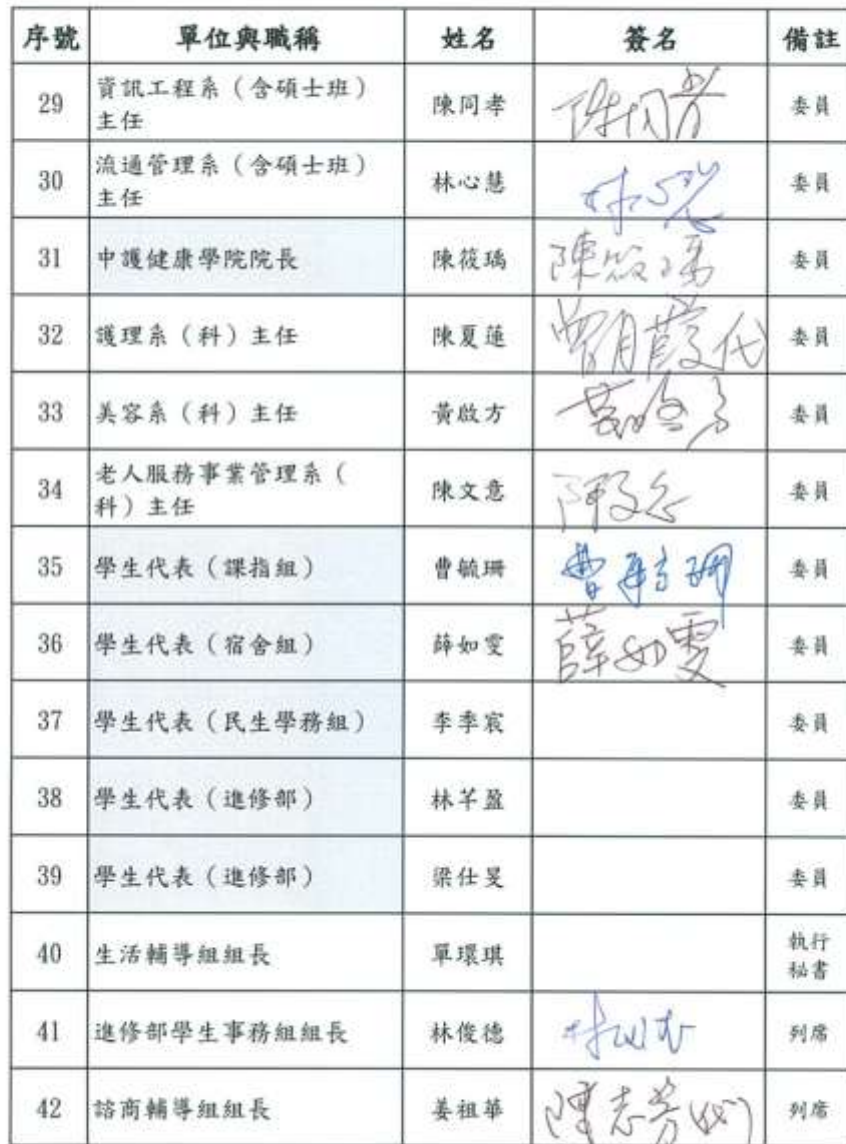 序號 單位與職稱 姓名 簽名 備註
29 資訊工程系（含碩士班）主任 陳同孝 陳同孝 委員
30 流通管理系（含碩士班）主任 林心慧 林心慧 委員
31 中護健康學院院長 陳筱瑀 陳筱瑀 委員
32 護理系（科）主任 陳夏蓮 曾月霞代 委員
33 美容系（科）主任 黃啟方 黃啟方 委員
34 老人服務事業管理系（科）主任 陳文意 陳文意 委員
35 學生代表（課指組） 曹毓珊 曹毓珊 委員
36 學生代表（宿舍組） 薛如雯 薛如雯 委員
37 學生代表（民生學務組） 李季宸 委員
38 學生代表（進修部） 林芊盈 委員
39 學生代表（進修部） 梁仕旻 委員
40 生活輔導組組長 單環琪 執行秘書
41 進修部學生事務組組長 林俊德 列席
42 諮商輔導組組長 姜祖華 陳志芳(代) 列席